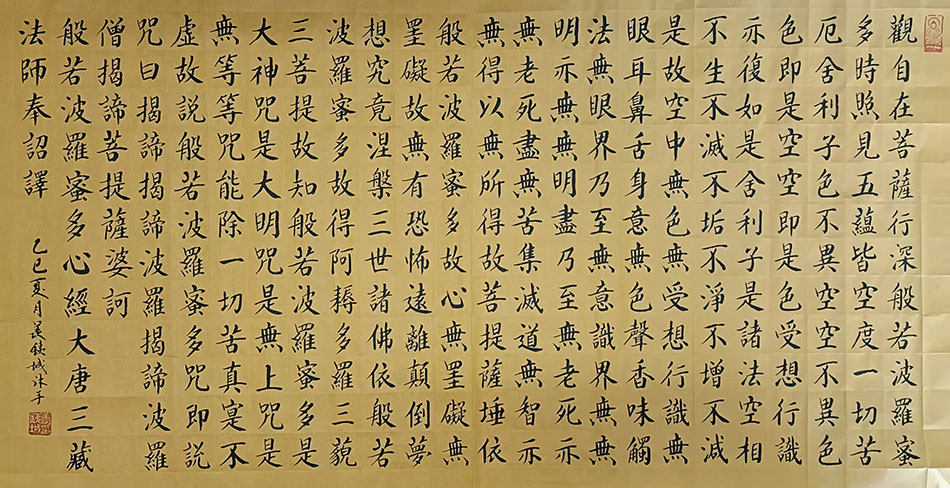 觀自在菩薩行深般若波羅蜜
多時照見五蘊皆空度一切苦
厄舍利子色不異空空不異色
色即是空空即是色受想行識
亦復如是舍利子是諸法空相
不生不滅不垢不淨不增不減
是故空中無色無受想行識無
眼耳鼻舌身意無色聲香味觸
法無眼界乃至無意識界無無
明亦無無明盡乃至無老死亦
無老死盡無苦集滅道無智亦
無得以無所得故菩提薩埵依
般若波羅蜜多故心無罣礙無
罣礙故無有恐怖遠離顛倒夢
想究竟涅槃三世諸佛依般若
波羅蜜多故得阿耨多羅三藐
三菩提故知般若波羅蜜多是
大神咒是大明咒是無上咒是
無等等咒能除一切苦真寔不
虛故説般若波羅蜜多咒即説
咒曰揭諦揭諦波羅揭諦波羅
僧揭諦菩提薩婆訶
般若波羅蜜多心經大唐三藏
法師奉詔譯
乙巳夏月城沐手